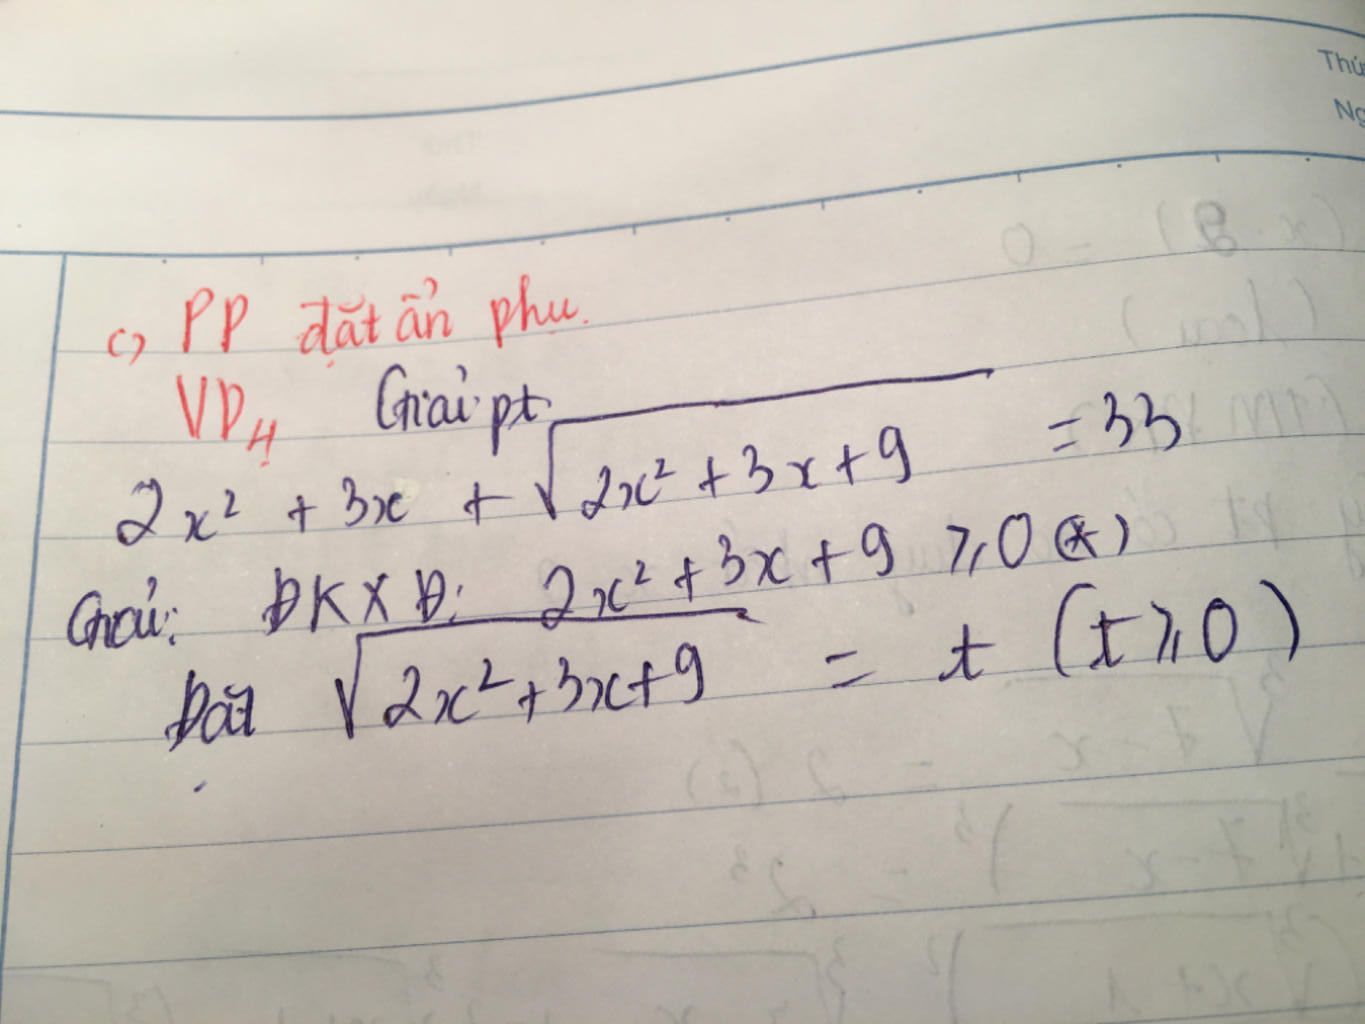 Thứ
Ng
c) PP đặt ẩn phụ.
VD4 Giải pt
2x² + 3x + √2x² + 3x + 9 = 33
Giải: ĐKXĐ: 2x² + 3x + 9 ⩾ 0 (*)
Đặt √2x² + 3x + 9 = t (t ⩾ 0)